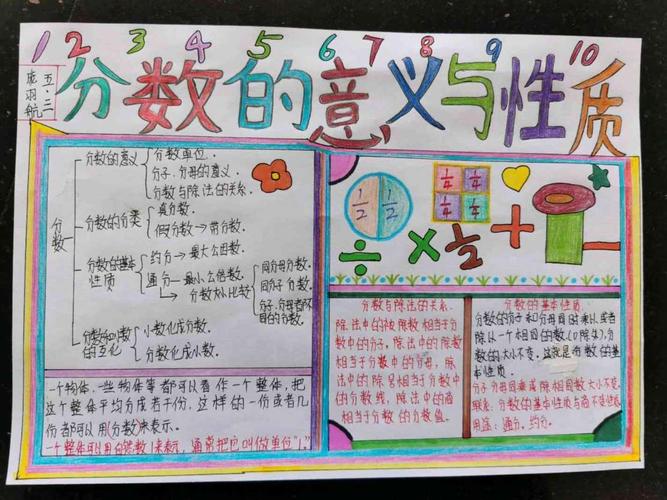 1 2 3 4 5 6 7 8 9 10
五.三
分数的意义与性质
分数
分数的意义
分数单位.
分子.分母的意义.
分数与除法的关系.
分数的分类
真分数.
假分数→带分数.
分数的基本
性质
约分→最大公因数.
通分→最小公倍数.
→分数大小比较
同分母分数.
同分子分数.
分子.分母都不
同的分数.
的互化
小数化成分数.
分数化成小数.
一个物体.一些物体等都可以看作一个整体,把
这个整体平均分成若干份,这样的一份或者几
份都可以用(分数)来表示.
一个整体可以用自然数1来表示,通常把它叫做单位"1."
1/2 1/2
1/4 1/4
1/4 1/4
÷ × 1/2 +
分数与除法的关系.
除法中的被除数相当于分
数中的分子.除法中的除数
相当于分数中的分母,除
法中的除号相当于分数中
的分数线,除法中的商
相当于分数的分数值.
分数的基本性质.
分数的分子和分母同时乘以或者
除以一个相同的数(0除外),分
数的大小不变.这就是分数的基
本性质.
分子分母同乘或除相同数大小不变.
联系:分数的基本性质与商不变性质.
用途:通分.约分.